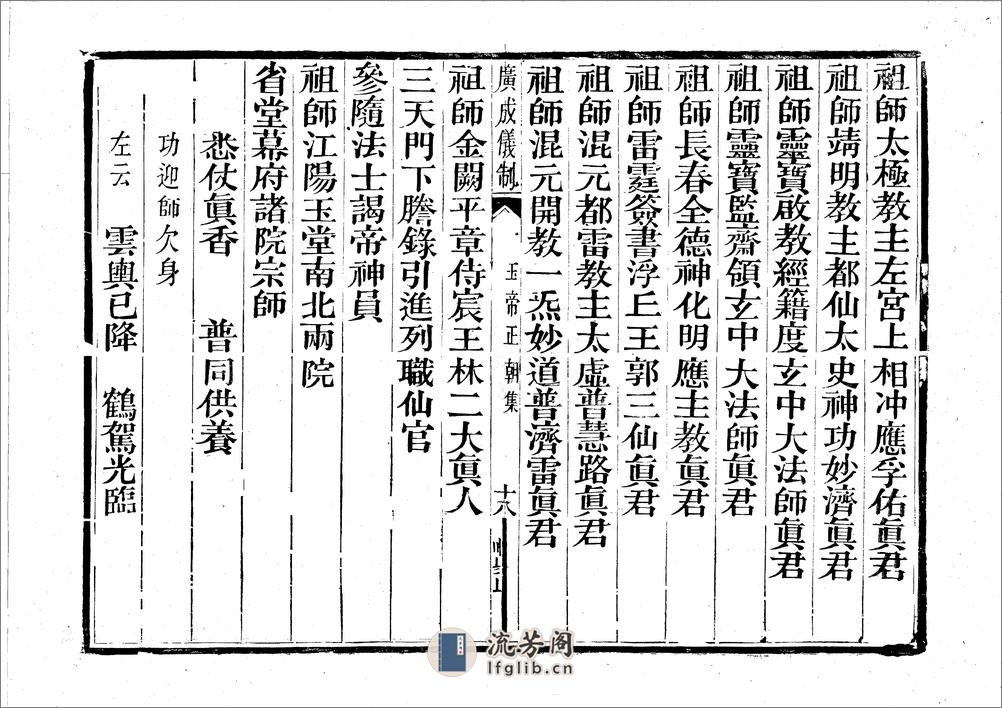 祖師太極教主左宮上相冲應孚佑眞君
祖師靖明教主都仙太史神功妙濟眞君
祖師靈寶啟教經籍度玄中大法師眞君
祖師靈寶監齋領玄中大法師眞君
祖師長春全德神化明應主教眞君
祖師雷霆簽書浮丘王郭三仙眞君
祖師混元都雷教主太虛普慧路眞君
祖師混元開教一炁妙道普濟雷眞君
廣成儀制 玉帝正朝集 十六
祖師金闕平章侍宸王林二大眞人
三天門下謄錄引進列職仙官
參隨法士謁帝神員
祖師江陽玉堂南北兩院
省堂幕府諸院宗師
悉仗眞香 普同供養
功迎師欠身
左云 雲輿已降 鶴駕光臨
流芳阁
lfglib.cn